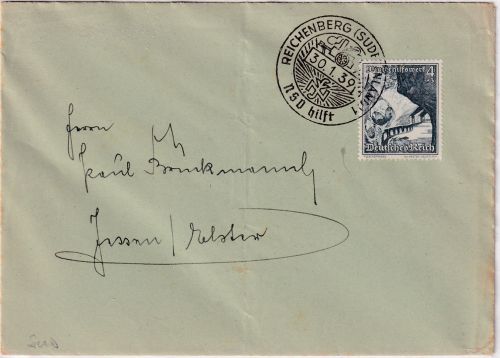 REICHENBERG (SUDE
30.1.39
NSD hilft
Winterhilfswerk 4
Deutsches Reich
Herrn
Paul Brückmann
Jessen / Elster